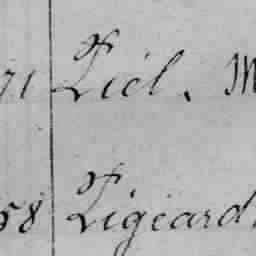 71 Fiel. M
58 Figeard